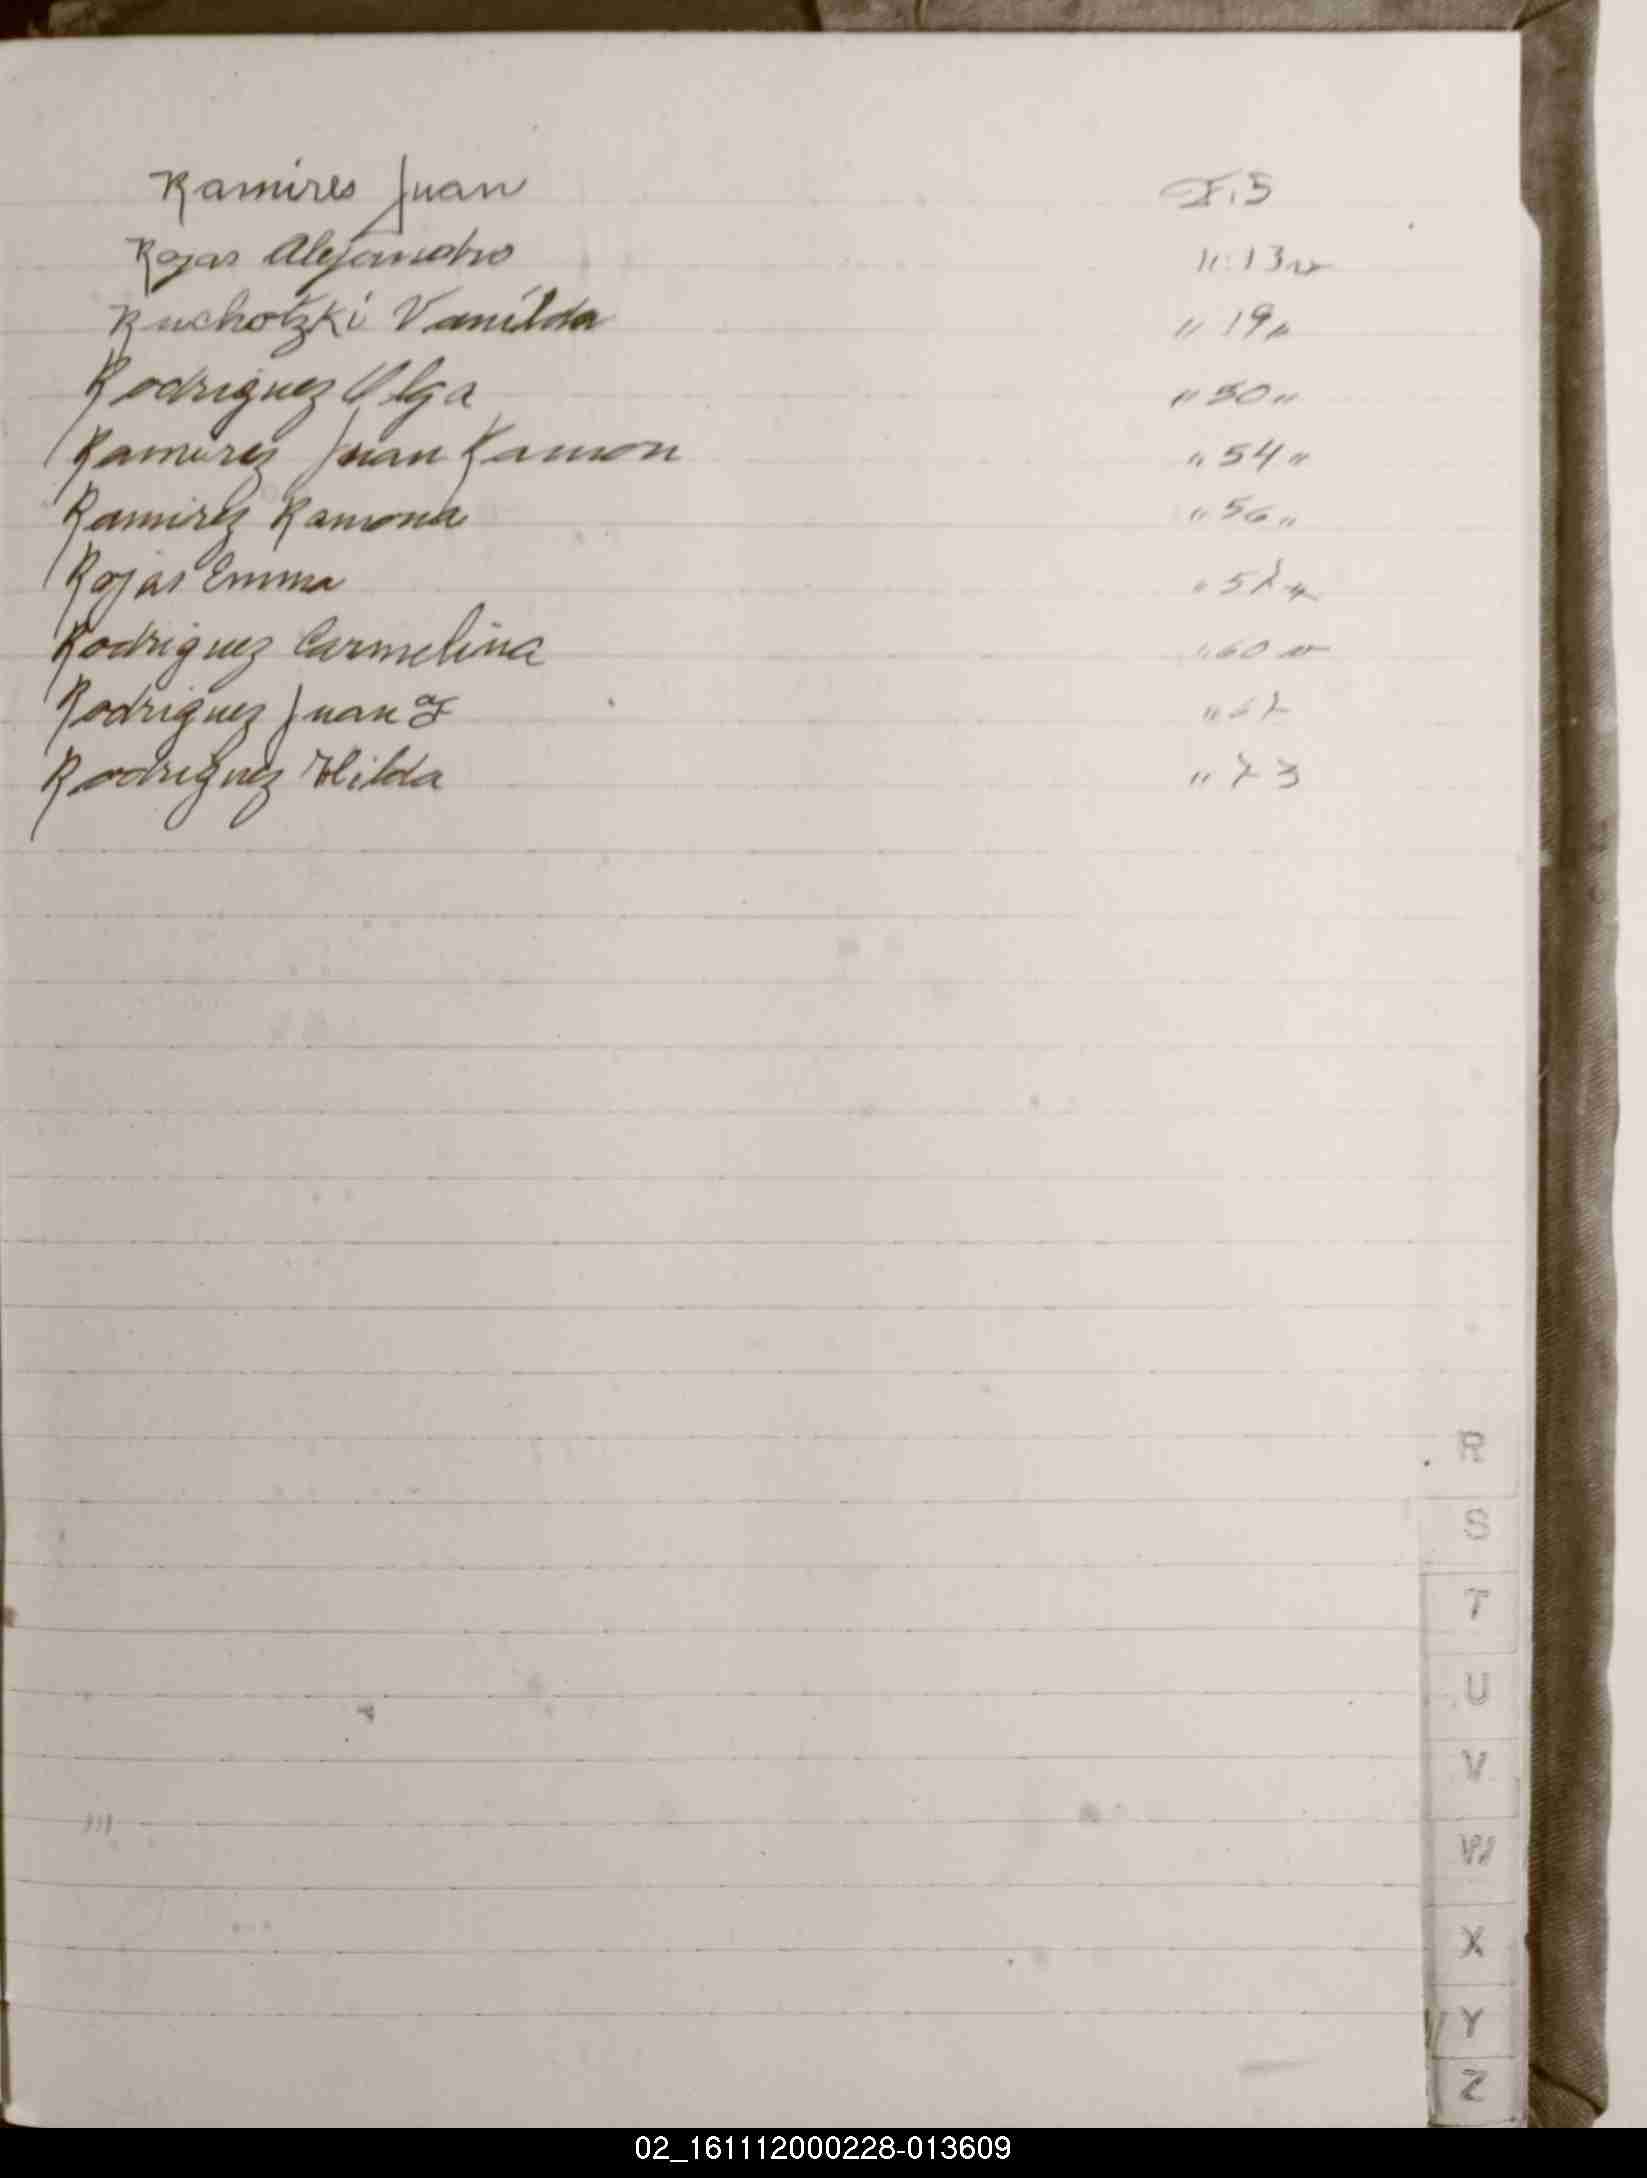 Ramires Juan F. 5
Rojas Alejandro " 13 v
Ruchotzki Vanilda " 19 "
Rodriguez Olga " 50 "
Ramirez Juan Ramon " 54 "
Ramirez Ramona " 56 "
Rojas Emma " 57 v
Rodriguez Carmelina " 60 v
Rodriguez Juan F "
Rodriguez Hilda " 73
R
S
T
U
V
W
X
Y
Z
02_161112000228-013609